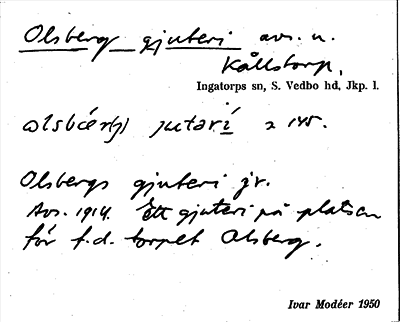 Olsberg gjuteri avs. u.
Källstorp,
Ingatorps sn, S. Vedbo hd, Jkp. l.
jutarí 2 145.
Olsbergs gjuteri jr.
Avs. 1914. Ett gjuteri på platsen
för f.d. torpet Olsberg.
Ivar Modéer 1950